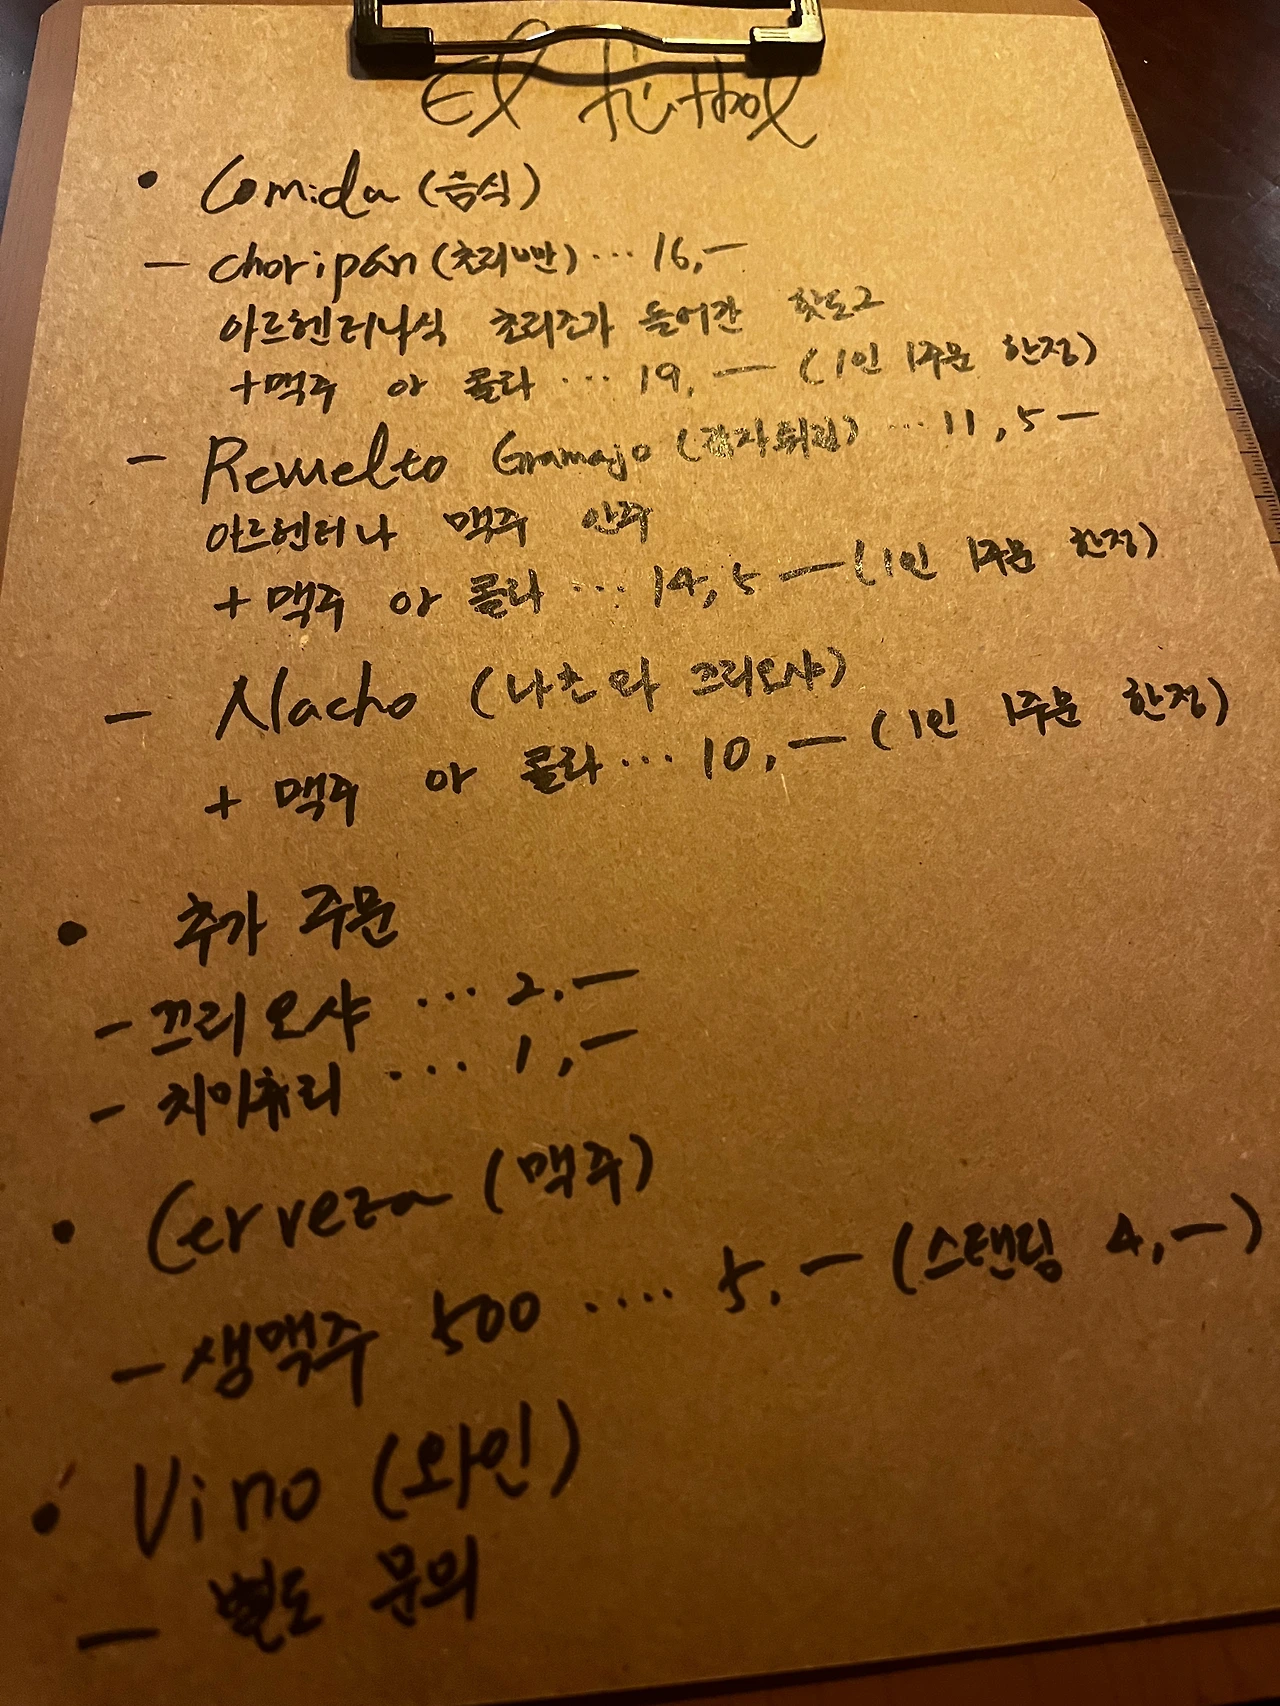 El
• Comida (음식)
- choripán (초리빤) ... 16,-
아르헨티나식 초리조가 들어간 핫도그
+맥주 or 콜라 ... 19,- (1인 1주문 한정)
- Revuelto Gramajo (감자튀김) ... 11,5-
아르헨티나 맥주 안주
+ 맥주 or 콜라 ... 14,5- (1인 1주문 한정)
- Nacho (나쵸와 끄리오샤)
+ 맥주 or 콜라 ... 10,- (1인 1주문 한정)
• 추가 주문
- 끄리오샤 ... 2,-
- 치미츄리 ... 1,-
• Cerveza (맥주)
- 생맥주 500 .... 5,- (스탠딩 4,-)
• Vino (와인)
- 별도 문의